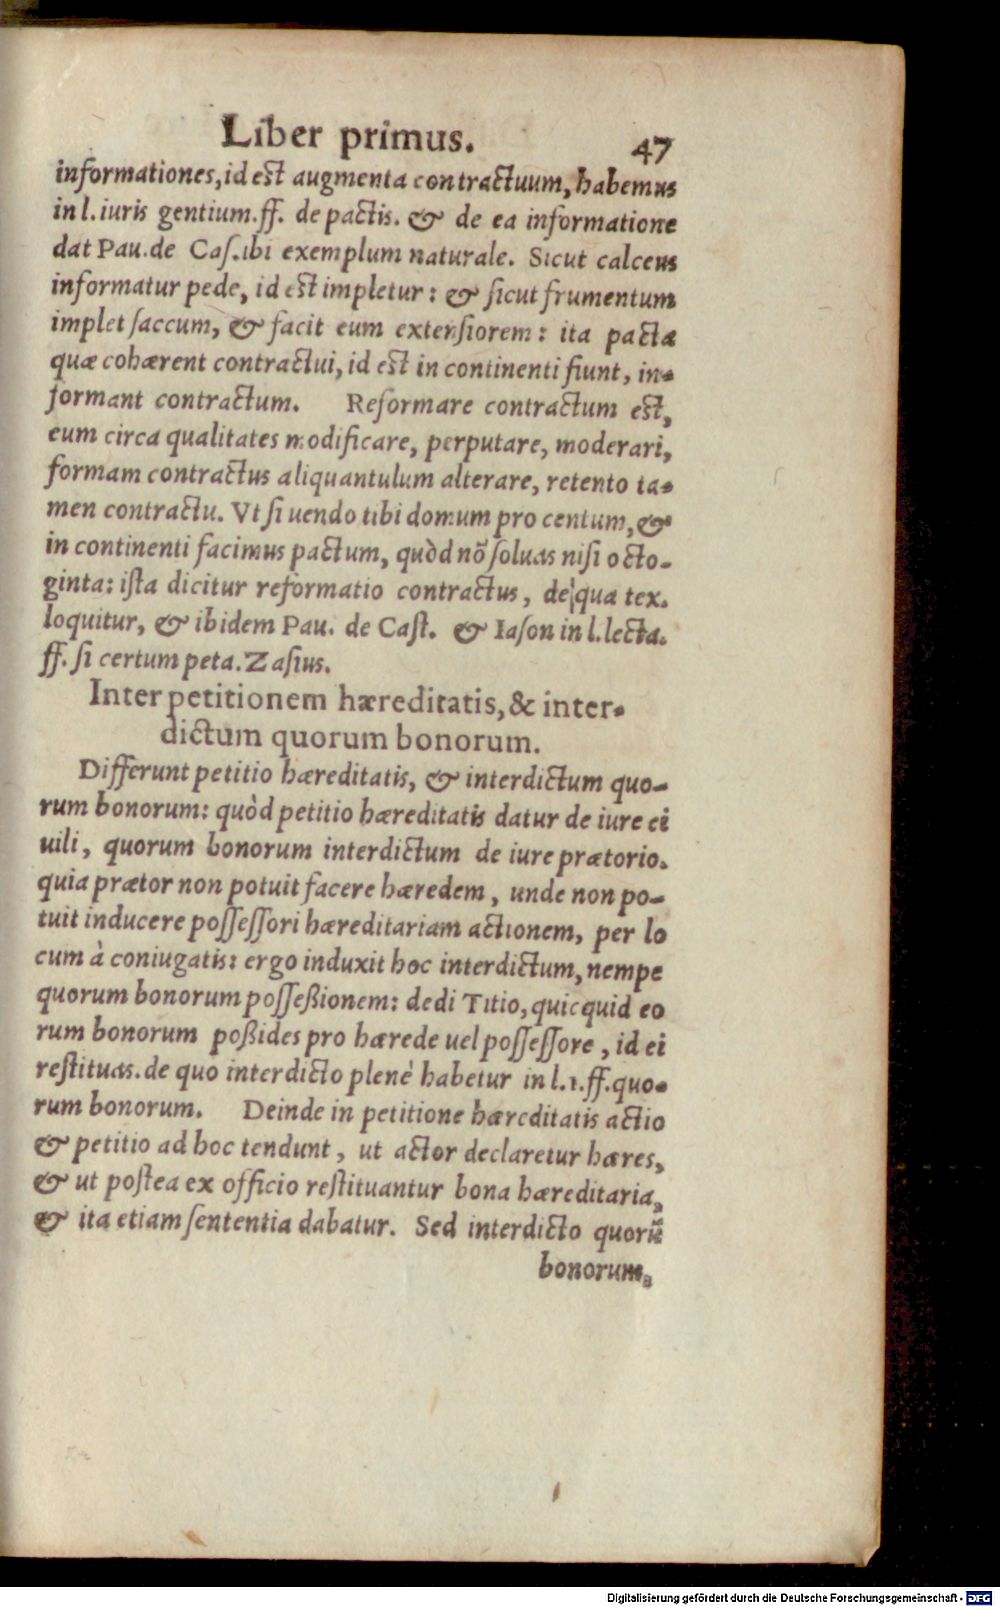 Liber primus. 47
informationes, id est augmenta contractuum, habemus
in l. iuris gentium. ff. de pactis. & de ea informatione
dat Pau. de Caſ. ibi exemplum naturale. Sicut calceus
informatur pede, id est impletur: & ſicut frumentum
implet ſaccum, & facit eum extenſiorem: ita pacta
quæ cohærent contractui, id est in continenti fiunt, in-
formant contractum. Reformare contractum est,
eum circa qualitates modificare, perputare, moderari,
formam contractus aliquantulum alterare, retento ta-
men contractu. Vt ſi uendo tibi domum pro centum, &
in continenti facimus pactum, quòd nō ſoluas niſi octo-
ginta: iſta dicitur reformatio contractus, de qua tex.
loquitur, & ibidem Pau. de Caſt. & Iaſon in l. lecta.
ff. ſi certum peta. Zaſius.
Inter petitionem hæreditatis, & inter-
dictum quorum bonorum.
Differunt petitio hæreditatis, & interdictum quo-
rum bonorum: quòd petitio hæreditatis datur de iure ci
uili, quorum bonorum interdictum de iure prætorio.
quia prætor non potuit facere hæredem, unde non po-
tuit inducere poſſeſſori hæreditariam actionem, per lo
cum à coniugatis: ergo induxit hoc interdictum, nempe
quorum bonorum poſſeßionem: dedi Titio, quicquid eo
rum bonorum poßides pro hærede uel poſſeſſore, id ei
reſtituas. de quo interdicto plenè habetur in l. 1. ff. quo-
rum bonorum. Deinde in petitione hæreditatis actio
& petitio ad hoc tendunt, ut actor declaretur hæres,
& ut poſtea ex officio reſtituantur bona hæreditaria,
& ita etiam ſententia dabatur. Sed interdicto quorū
bonorum,
Digitalisierung gefördert durch die Deutsche Forschungsgemeinschaft - DFG